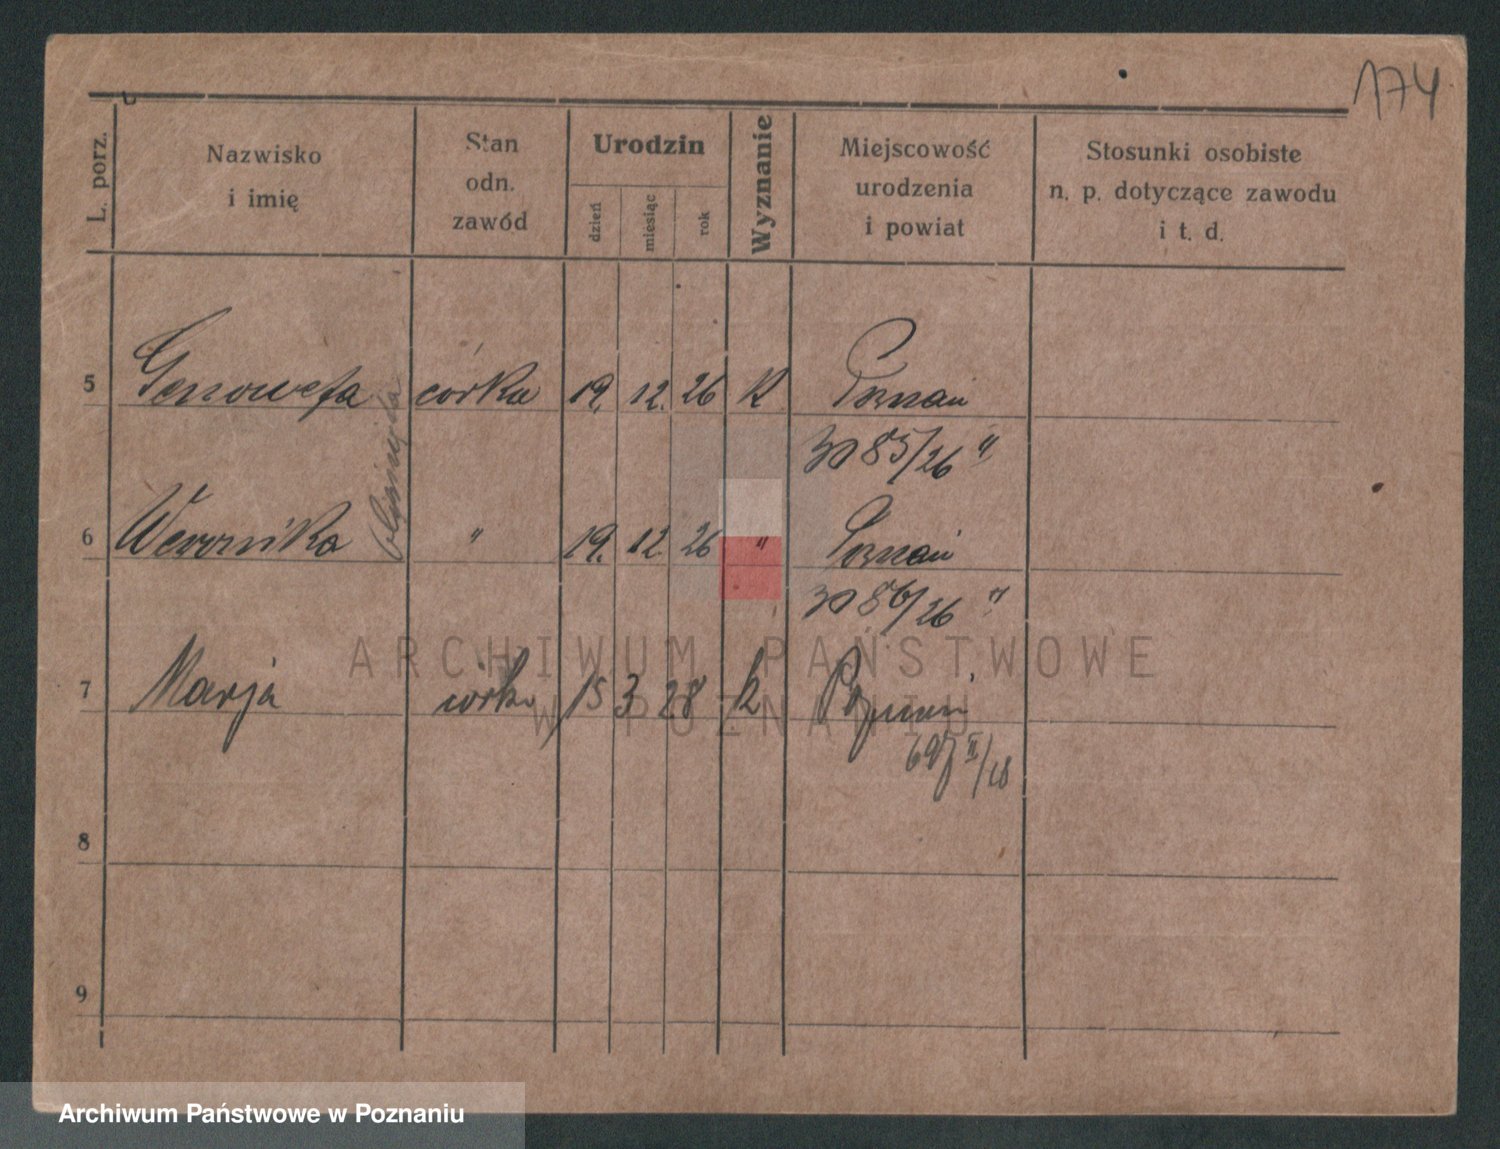 174
L. porz.
Nazwisko
i imię
Stan
odn.
zawód
Urodzin
dzień
miesiąc
rok
Wyznanie
Miejscowość
urodzenia
i powiat
Stosunki osobiste
n. p. dotyczące zawodu
i t. d.
5 Genowefa córka 19. 12. 26 K Poznań
85/26 "
6 Weronika " 19. 12 26 " Poznań
86/26 "
7 Marja córka 15 3 28 k Poznań
8
9
ARCHIWUM PAŃSTWOWE
W POZNANIU
Archiwum Państwowe w Poznaniu